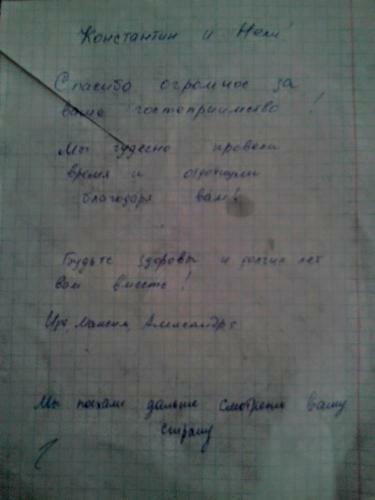 Константин и Нели!
Спасибо огромное за
ваше гостеприимство!
Мы чудесно провели
время и отдохнули
благодаря вам!
Будьте здоровы и долгих лет
вам вместе!
Ира, Максим, Александра
Мы поехали дальше смотреть вашу
страну